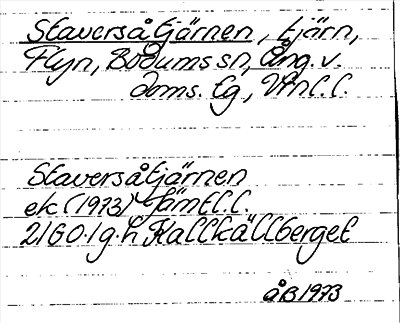 Staversåtjärnen, tjärn,
Flyn, Bodums sn, Ång. v.
doms. tg, Vrnl.l.
Staversåtjärnen
ek (1973) Jämtl.l.
21GO.1g.h Kallkällberget
åB 1973